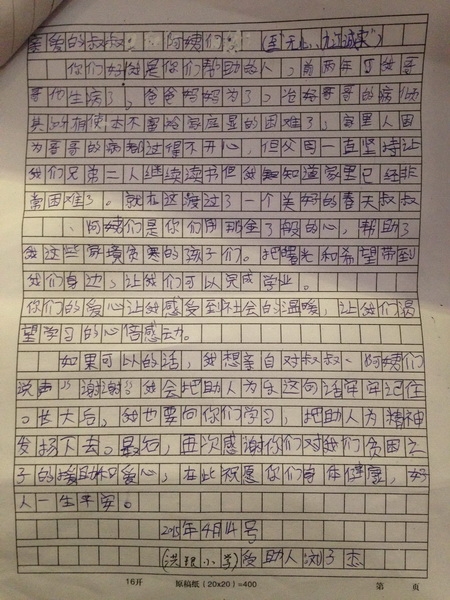 亲爱的叔叔、阿姨们
你们好!我是你们帮助的人,前两年可我哥
哥他生病了,爸爸妈妈为了,治好哥哥的病
本不富裕家庭显的困难了,家里人因
为哥哥的病都过得不开心,但父母一直坚持让
我们兄弟二人继续读书但我知道家里已经非
常困难了。就在这渡过了一个美好的春天叔叔
、阿姨们是你们用那金子般的心,帮助了
我这些家境贫寒的孩子们。把曙光和希望带到
我们身边,让我们可以完成学业。
你们的爱心让我感受到社会的温暖,让我们渴
望学习的心倍感动力。
如果可以的话,我想亲自对叔叔、阿姨们
说声“谢谢”我会把助人为乐这句话牢牢记住
。长大后,我也要向你们学习,把助人为精神
发扬下去。最后,再次感谢你们对我们贫困之
子的援助和爱心,在此祝愿你们身体健康,好
人一生平安。
2015年4月14号
小学)受助人刘子杰
16开 原稿纸(20x20)=400 第 页